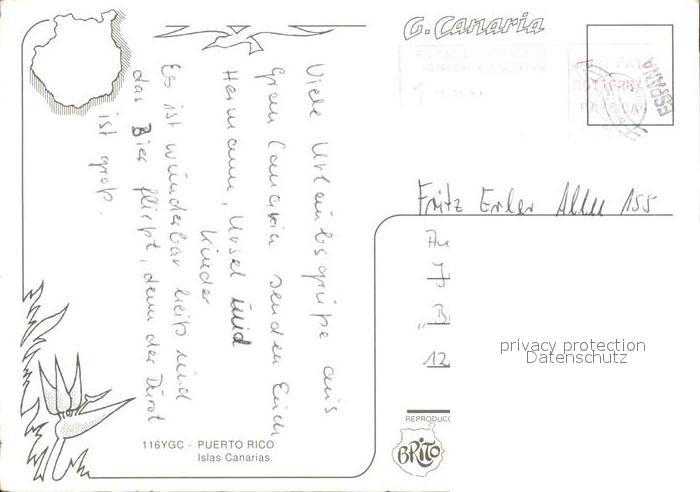 G. Canaria
ESPAÑA
Viele Urlaubsgrüße aus
Gran Canaria senden Euch
Hermann, Ursel und
Kinder
Es ist wunderbar heiß und
das Bier fließt, denn der Durst
ist groß.
Fritz Erler Allee 155
12
privacy protection
Datenschutz
116YGC - PUERTO RICO
Islas Canarias
REPRODUC
BRITO